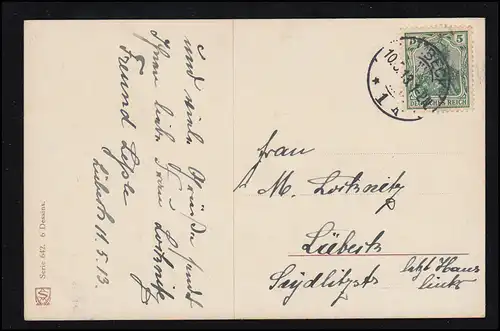 und viele Grüße sendet
Ihnen liebe Frau Lortnitz
Freund
Lübeck 11.5.13.
5
DEUTSCHES REICH
LÜBECK
10.5.13
* 1
Frau
M. Lortnitz
Lübeck
Seydlitzstr. letzt Haus
links
Serie 642. 6 Dessins.